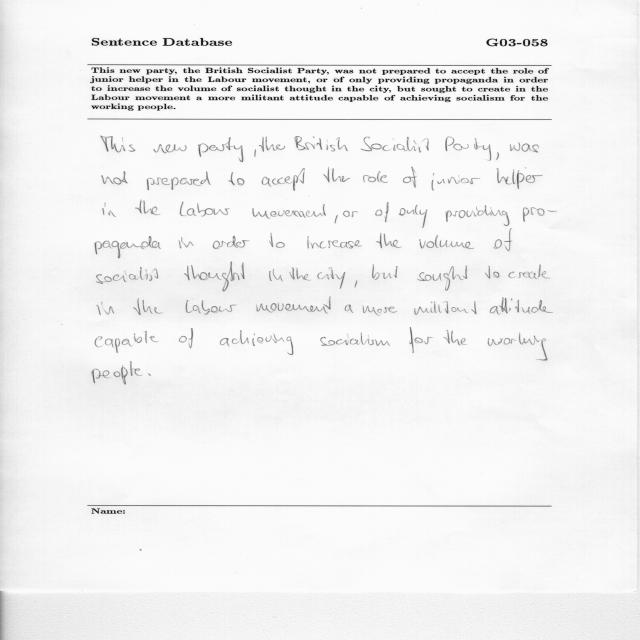 Sentence Database G03-058
This new party, the British Socialist Party, was not prepared to accept the role of
junior helper in the Labour movement, or of only providing propaganda in order
to increase the volume of socialist thought in the city, but sought to create in the
Labour movement a more militant attitude capable of achieving socialism for the
working people.
This new party, the British Socialist Party, was
not prepared to accept the role of junior helper
in the Labour movement, or of only providing pro-
paganda in order to increase the volume of
socialist thought in the city, but sought to create
in the Labour movement a more militant attitude
capable of achieving socialism for the working
people.
Name: